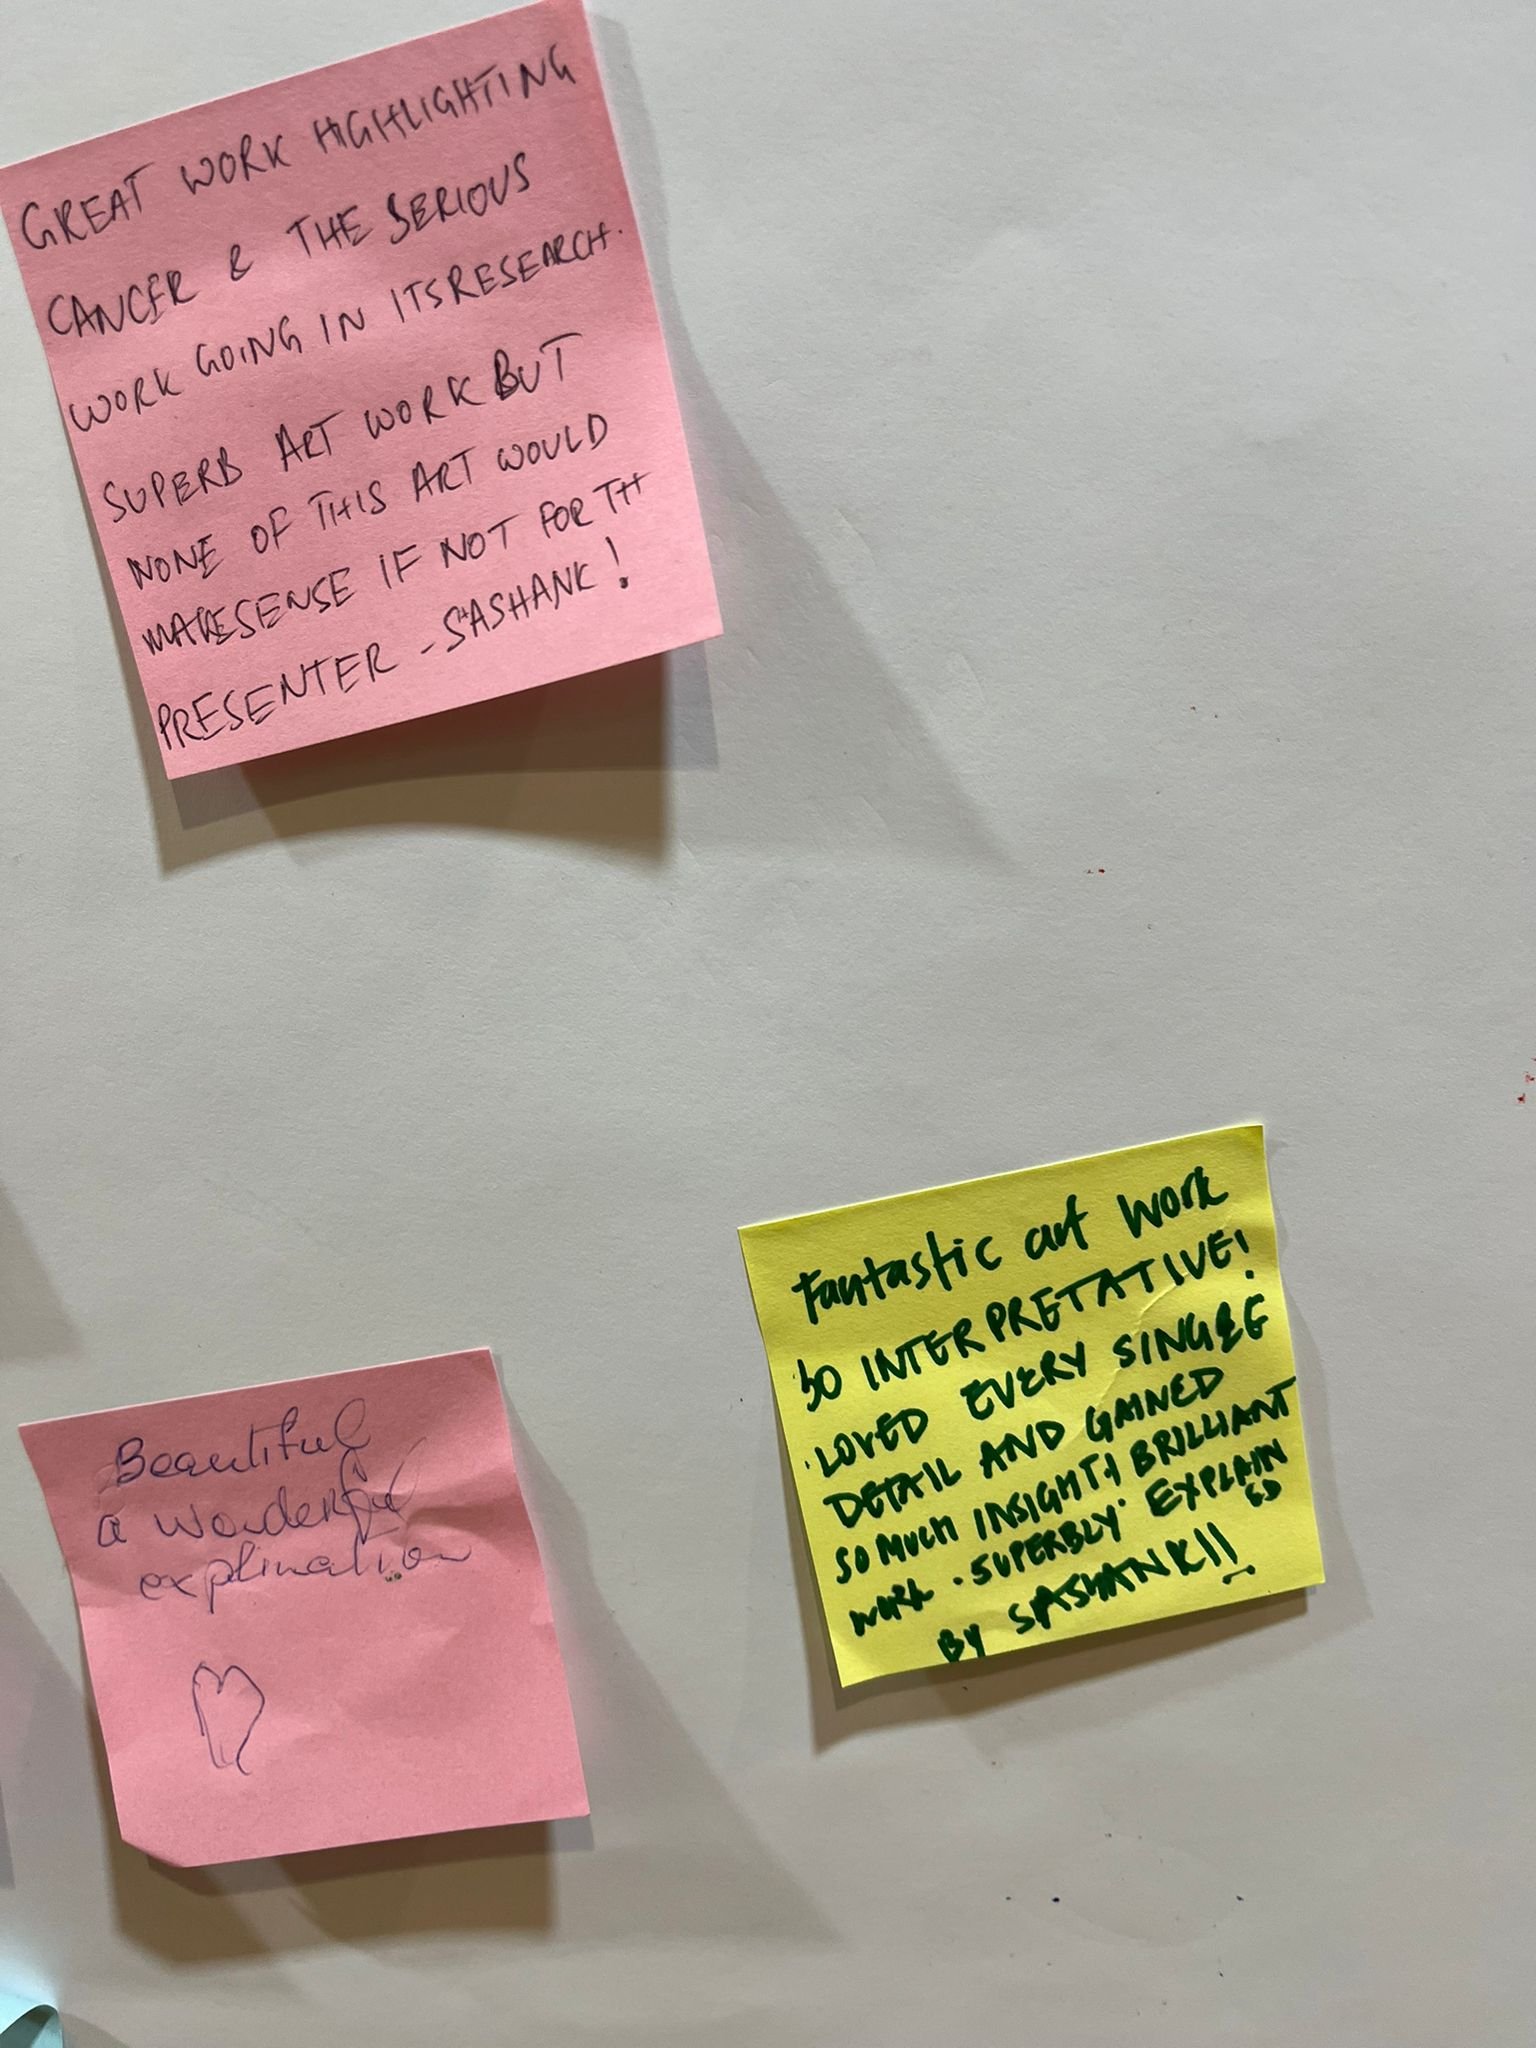 GREAT WORK HIGHLIGHTING
CANCER & THE SERIOUS
WORK GOING IN ITS RESEARCH.
SUPERB ART WORK BUT
NONE OF THIS ART WOULD
MAKE SENSE IF NOT FOR TH
PRESENTER - SASHANK!
Fantastic art work
SO INTERPRETATIVE!
LOVED EVERY SINGLE
DETAIL AND GAINED
SO MUCH INSIGHT! BRILLIANT
WORK. SUPERBLY EXPLAIN
ED
BY SASHANK!!
Beautiful
a wonderful
explination